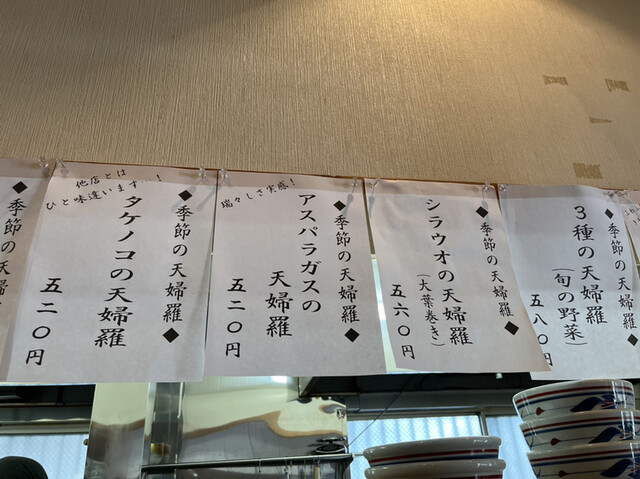 ◆季節の天婦羅
◆季節の天婦羅
3種の天婦羅
(旬の野菜)
五八〇円
◆季節の天婦羅◆
シラウオの天婦羅
(大葉巻き)
五六〇円
◆季節の天婦羅◆
瑞々しさ実感!
アスパラガスの
天婦羅
五二〇円
◆季節の天婦羅◆
他店とは
ひと味違います!
タケノコの天婦羅
五二〇円
◆季節の天婦羅